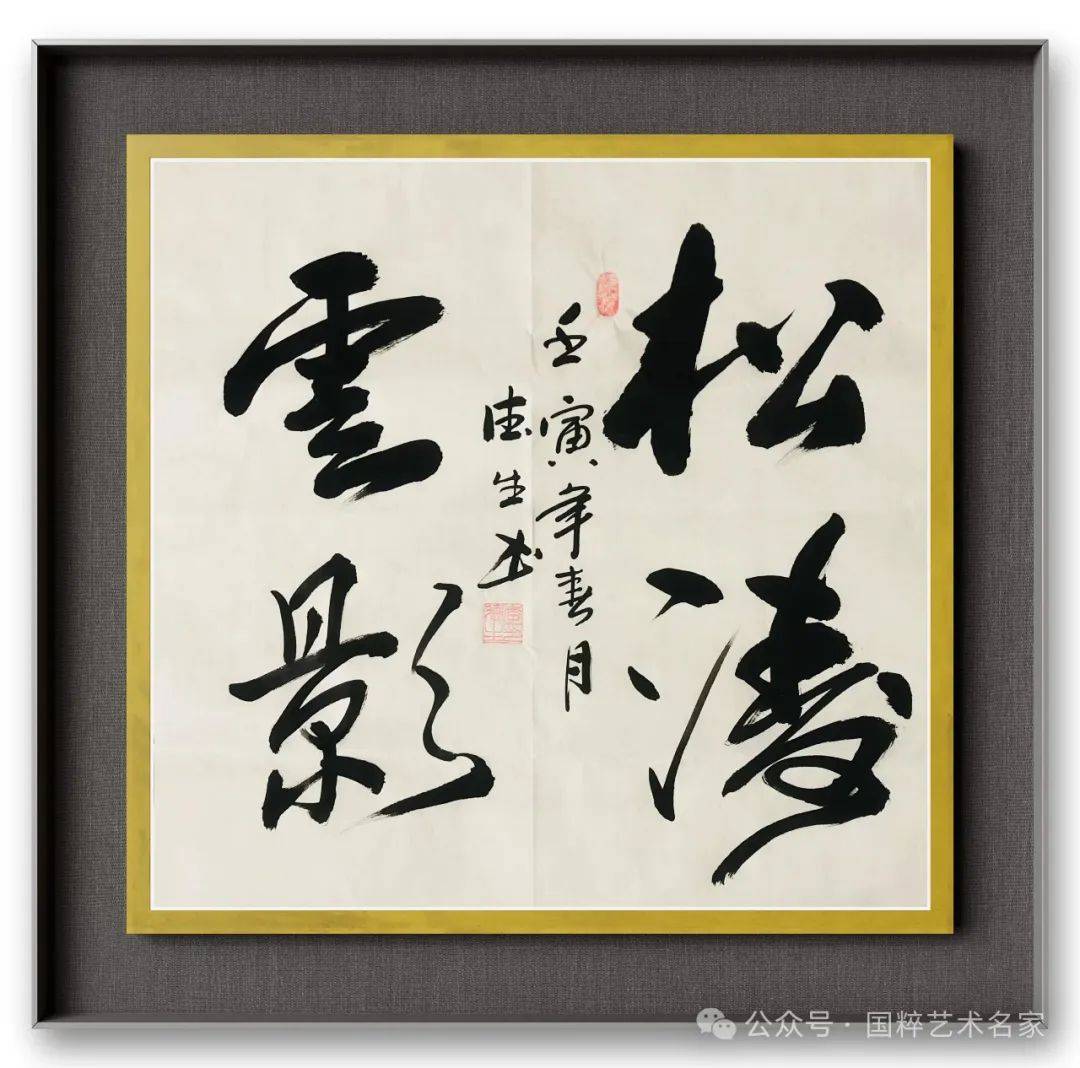 松濤
雲影
壬寅年春月
德生书
公众号·国粹艺术名家